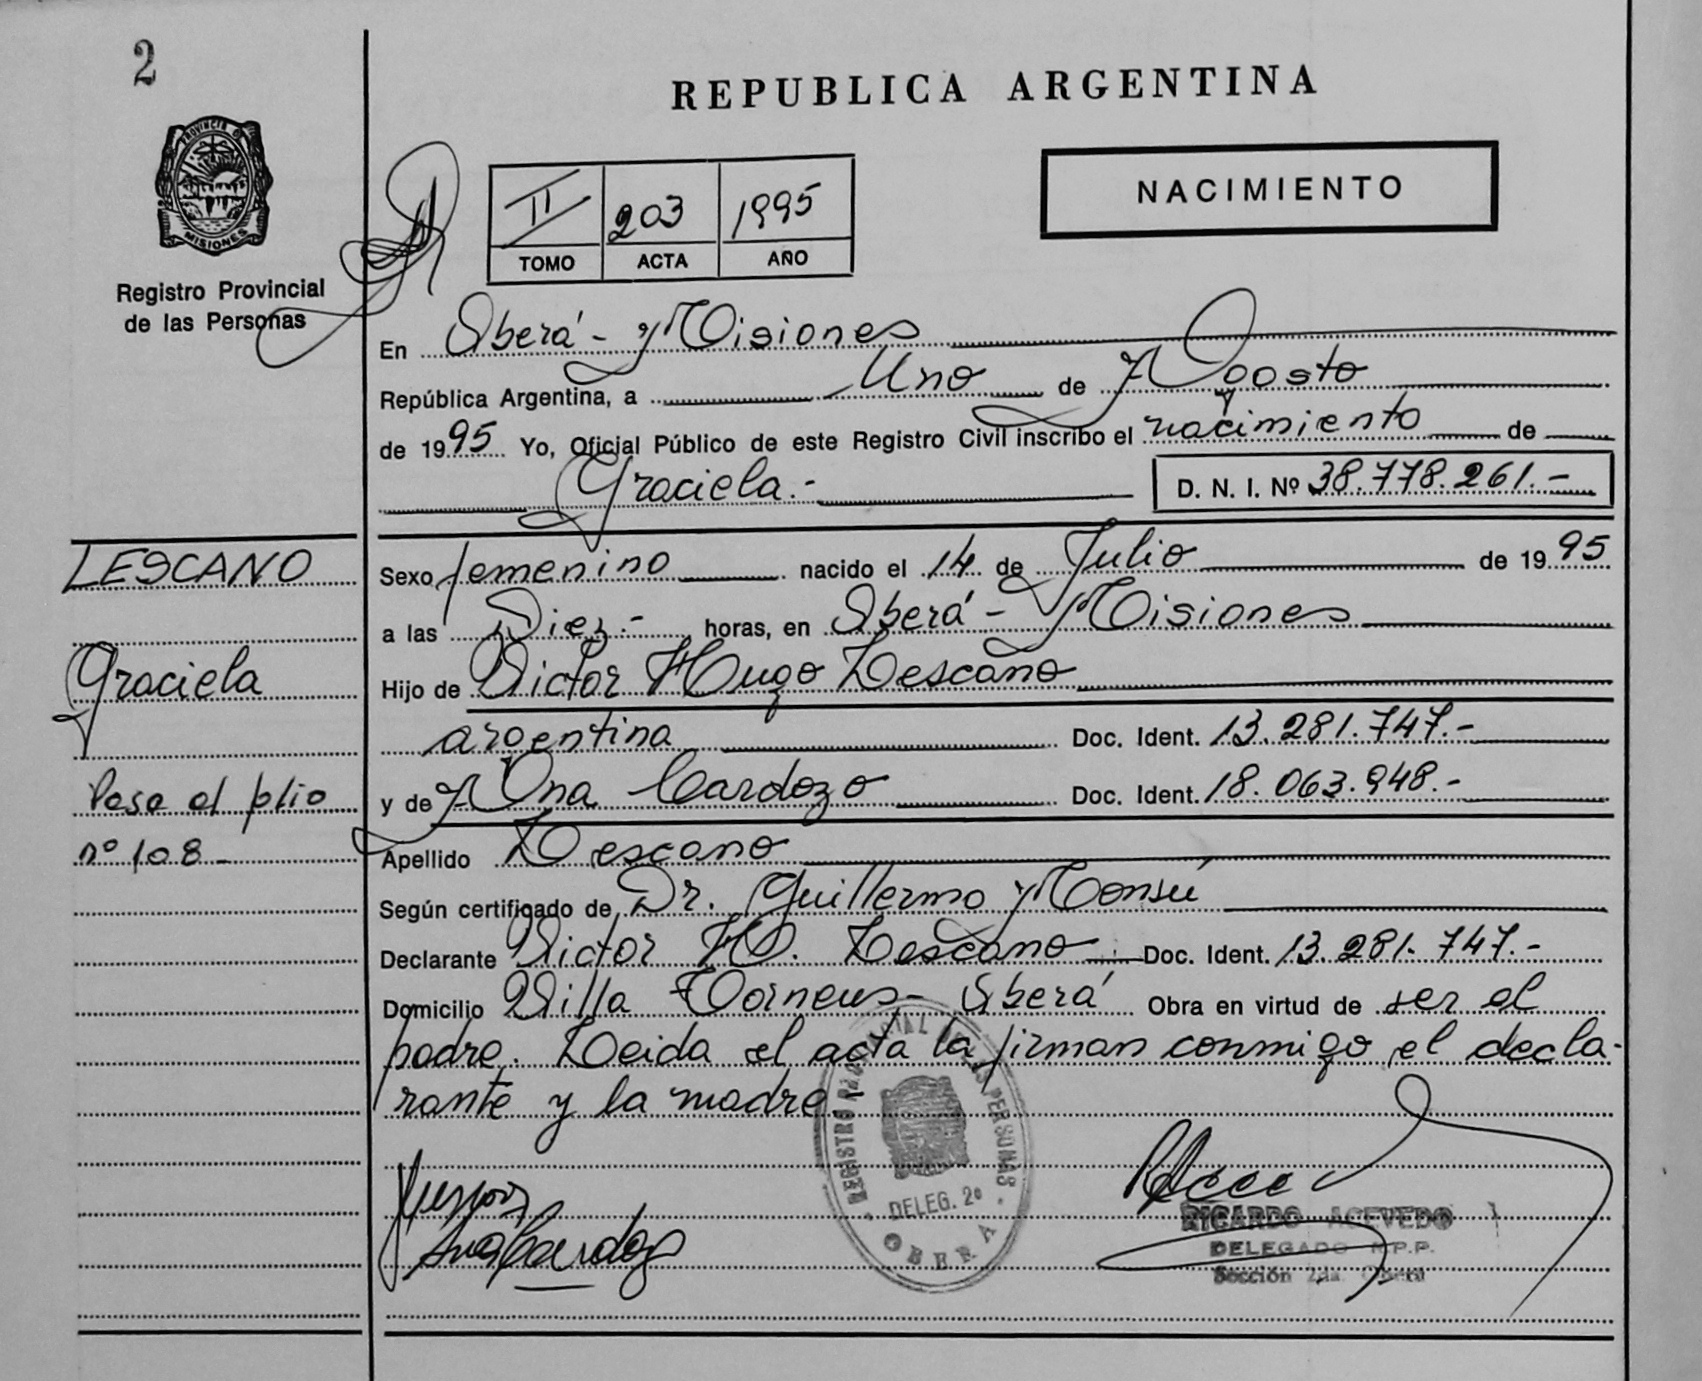 2
REPUBLICA ARGENTINA
PROVINCIA DE
MISIONES
Registro Provincial
de las Personas
II 203 1995
TOMO ACTA AÑO
NACIMIENTO
En Oberá - Misiones
República Argentina, a Uno de Agosto
de 1995 Yo, Oficial Público de este Registro Civil inscribo el nacimiento de
Graciela.- D. N. I. Nº 38.778.261.-
LESCANO
Graciela
Pase al folio
nº 108-
Sexo femenino nacido el 14 de Julio de 1995
a las Diez.- horas, en Oberá - Misiones
Hijo de Victor Hugo Lescano
argentina Doc. Ident. 13.281.747.-
y de Ana Cardozo Doc. Ident. 18.063.948.-
Apellido Lescano
Según certificado de Dr. Guillermo
Declarante Victor H. Lescano Doc. Ident. 13.281.747.-
Domicilio Villa - Oberá Obra en virtud de ser el
padre. Leida el acta la firman conmigo el decla-
rante y la madre-
REGISTRO PROVINCIAL DE LAS PERSONAS
DELEG. 2ª
OBERA
Ana Cardozo
RICARDO ACEVEDO
DELEGADO R.P.P.
Sección 2da. Oberá